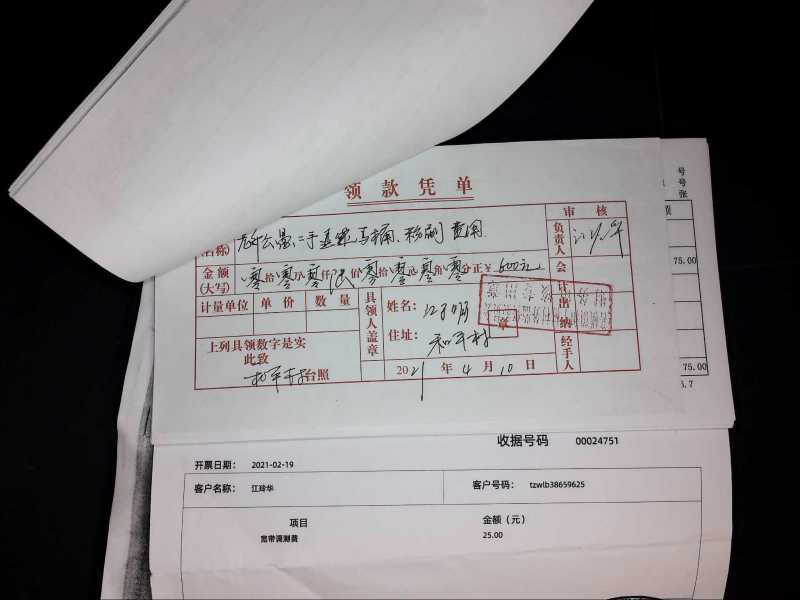 领款凭单
名称)
费用
审核
负责人
金额(大写) 零拾零万零仟 佰零拾零元零角零分正¥600元
会计
计量单位 单价 数量
具领人盖章
姓名:
住址:和平村
出纳
章
上列具领数字是实
此致
和平村台照
2021年4月10日
经手人
号
号
张
75.00
75.00
收据号码 00024751
开票日期: 2021-02-19
客户名称: 江玲华 客户号码: tzwlb38659625
项目 金额(元)
宽带调测费 25.00